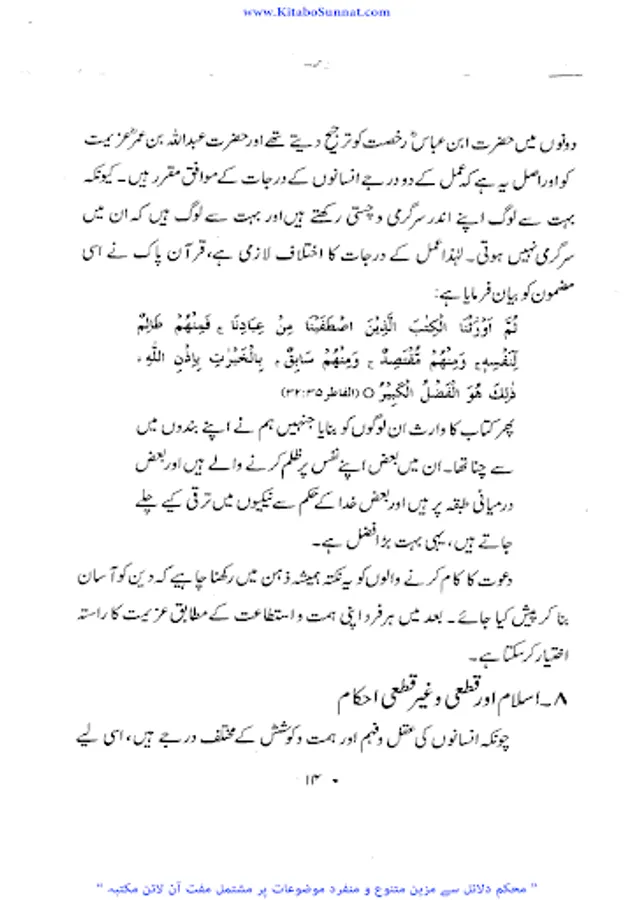 www.KitaboSunnat.com
دونوں میں حضرت ابن عباسؓ رخصت کو ترجیح دیتے تھے اور حضرت عبداللہ بن عمرؓ عزیمت
کو اور اصل یہ ہے کہ عمل کے دو درجے انسانوں کے درجات کے موافق مقرر ہیں۔ کیونکہ
بہت سے لوگ اپنے اندر سرگرمی و چستی رکھتے ہیں اور بہت سے لوگ ہیں کہ ان میں
سرگرمی نہیں ہوتی۔ لہٰذا عمل کے درجات کا اختلاف لازمی ہے، قرآن پاک نے اسی
مضمون کو بیان فرمایا ہے:
ثُمَّ اَوْرَثْنَا الْكِتٰبَ الَّذِيْنَ اصْطَفَيْنَا مِنْ عِبَادِنَا ۚ فَمِنْهُمْ ظَالِمٌ
لِّنَفْسِهٖ ۚ وَمِنْهُمْ مُّقْتَصِدٌ ۚ وَمِنْهُمْ سَابِقٌ ۢ بِالْخَيْرٰتِ بِاِذْنِ اللّٰهِ ۚ
ذٰلِكَ هُوَ الْفَضْلُ الْكَبِيْرُ ○ (الفاطر ۳۲:۳۵)
پھر کتاب کا وارث ان لوگوں کو بنایا جنہیں ہم نے اپنے بندوں میں
سے چنا تھا۔ ان میں بعض اپنے نفس پر ظلم کرنے والے ہیں اور بعض
درمیانی طبقہ پر ہیں اور بعض خدا کے حکم سے نیکیوں میں ترقی کیے چلے
جاتے ہیں، یہی بہت بڑا فضل ہے۔
دعوت کا کام کرنے والوں کو یہ نکتہ ہمیشہ ذہن میں رکھنا چاہیے کہ دین کو آسان
بنا کر پیش کیا جائے۔ بعد میں ہر فرد اپنی ہمت و استطاعت کے مطابق عزیمت کا راستہ
اختیار کر سکتا ہے۔
۸۔ اسلام اور قطعی و غیر قطعی احکام
چونکہ انسانوں کی عقل و فہم اور ہمت و کوشش کے مختلف درجے ہیں، اسی لیے
۱۴
" محکم دلائل سے مزین متنوع و منفرد موضوعات پر مشتمل مفت آن لائن مکتبہ "